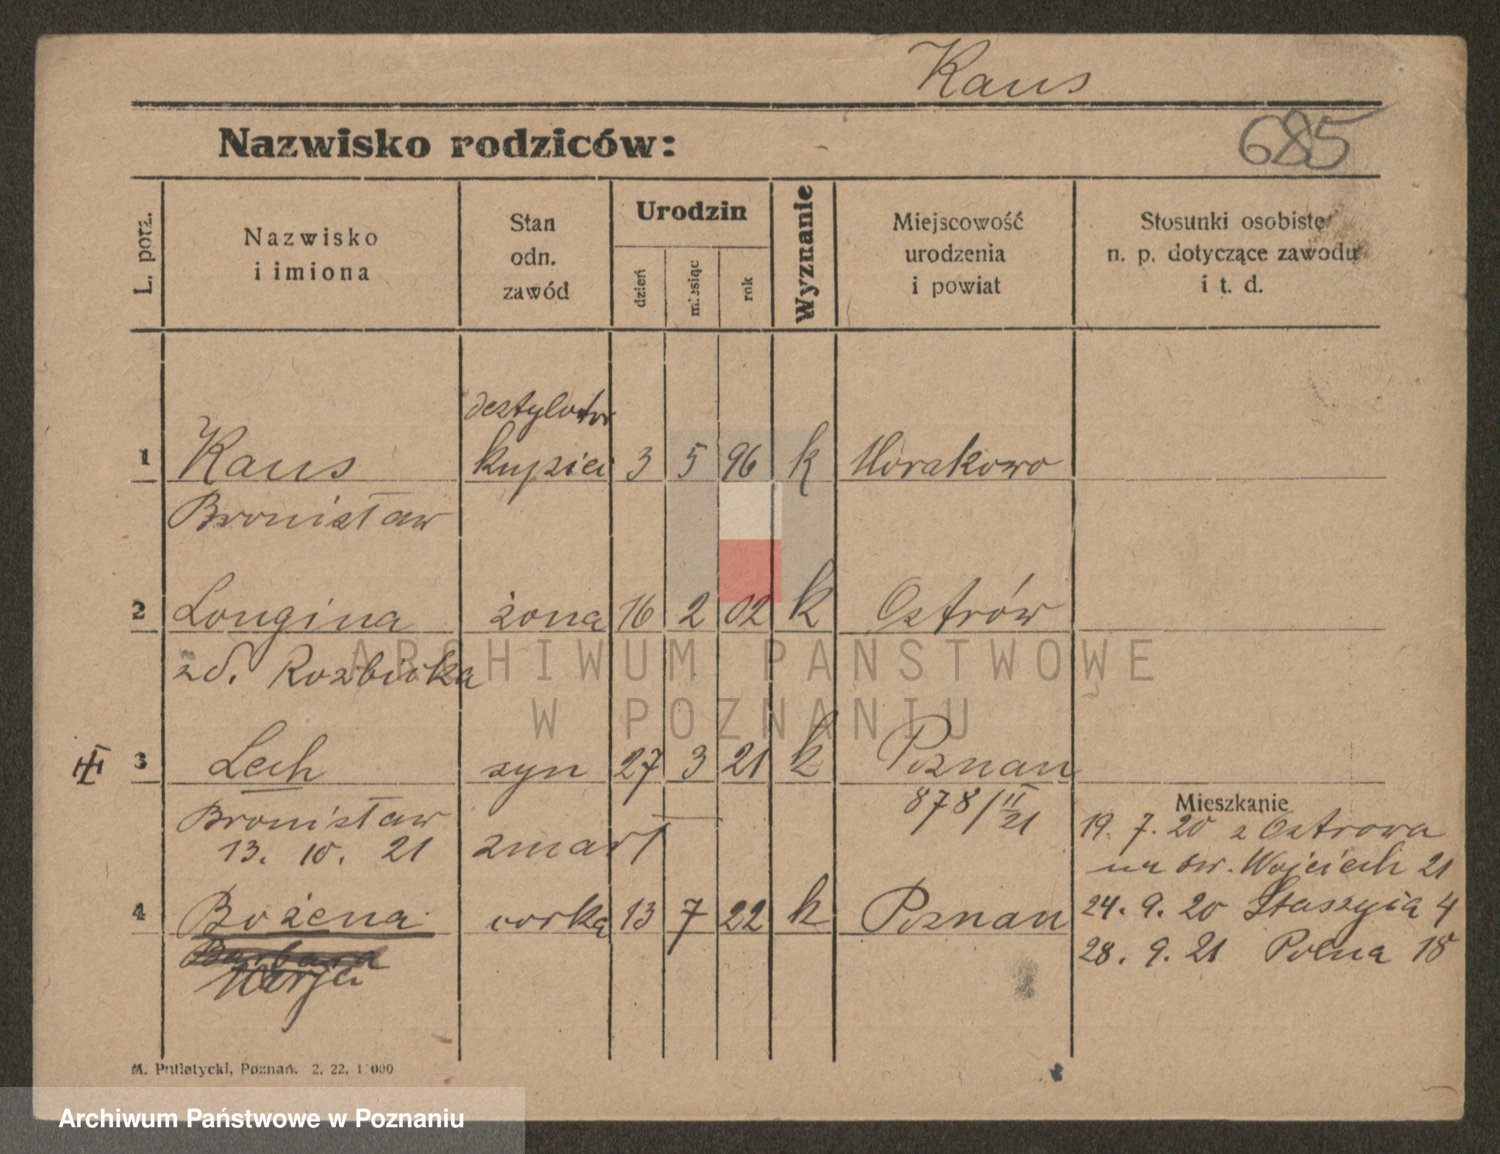 Kaus
Nazwisko rodziców:
685
L. porz.
Nazwisko
i imiona
Stan
odn.
zawód
Urodzin
dzień
miesiąc
rok
Wyznanie
Miejscowość
urodzenia
i powiat
Stosunki osobiste
n. p. dotyczące zawodu
i t. d.
destylator
1 Kaus kupiec 3 5 96 k
Bronisław
2 Longina żona 16 2 02 k Ostrów
zd. Rozbicka
ARCHIWUM PAŃSTWOWE
W POZNANIU
3 Lech syn 27 3 21 k Poznan
Bronisław 878/II/21
13. 10. 21 zmarł
Mieszkanie
19. 7. 20 z Ostrowa
na św. Wojciech 21
4 Bożena corka 13 7 22 k Poznan
24. 9. 20 Staszyca 4
Barbara
28. 9. 21 Polna 18
Marja
M. Putiatycki, Poznań. 2. 22. 1 000
Archiwum Państwowe w Poznaniu